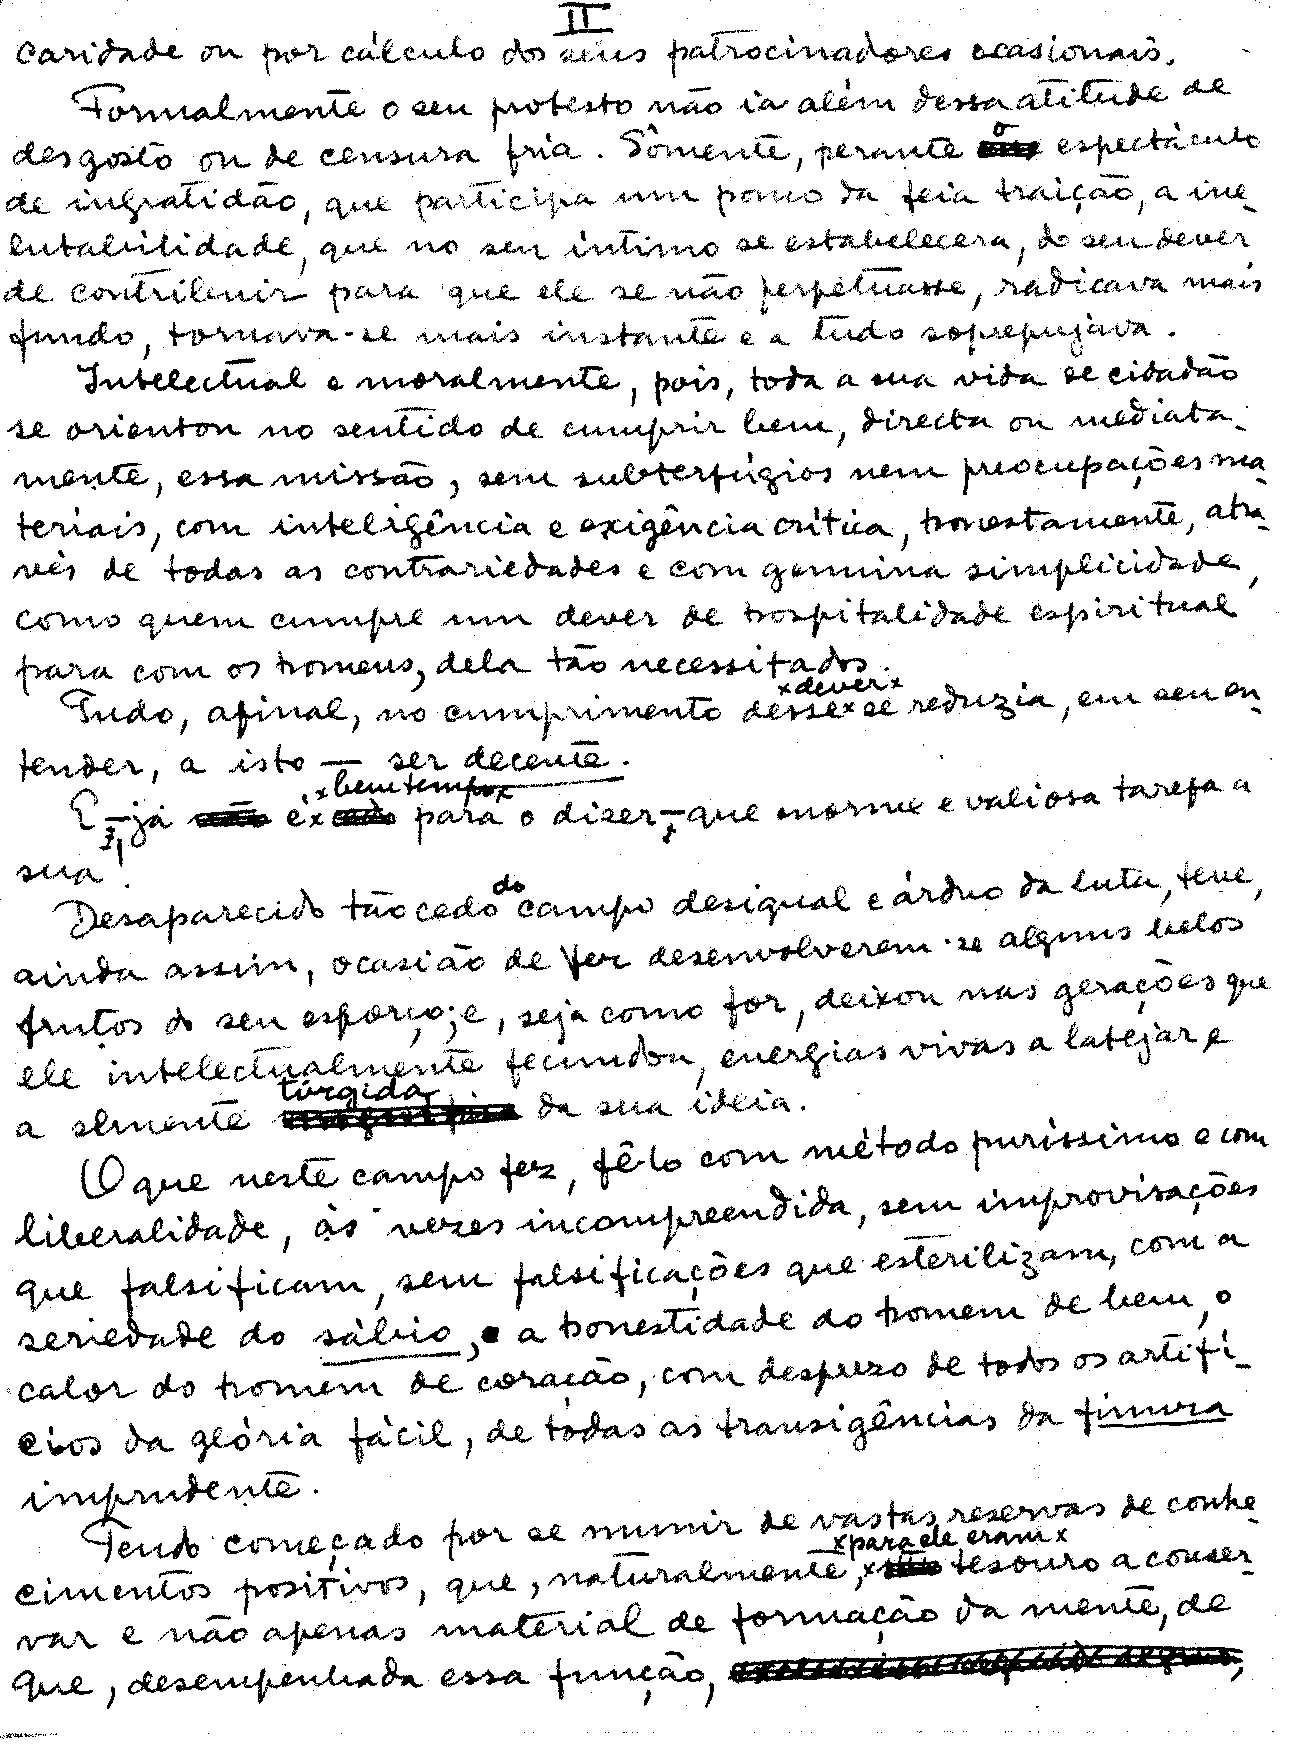 II
caridade ou por cálculo dos seus patrocinadores ocasionais.
Formalmente o seu protesto não ia além dessa atitude de
desgosto ou de censura fria. Sòmente, perante o espectáculo
de ingratidão, que participa um pouco da feia traição, a ine-
lutabilidade, que no seu íntimo se estabelecera, do seu dever
de contribuir para que ele se não perpetuasse, radicava mais
fundo, tornava-se mais instante e a tudo sobrepujava.
Intelectual e moralmente, pois, toda a sua vida se cidadão
se orientou no sentido de cumprir bem, directa ou mediata-
mente, essa missão, sem subterfúgios nem preocupações ma-
teriais, com inteligência e exigência crítica, honestamente, atra-
vés de todas as contrariedades e com genuina simplicidade,
como quem cumpre um dever de hospitalidade espiritual
para com os homens, dela tão necessitados.
Tudo, afinal, no cumprimento desse dever se reduzia, em seu en-
tender, a isto — ser decente.
E — já é bem tempo para o dizer, — que enorme e valiosa tarefa a
sua!
Desaparecido tão cedo do campo desigual e árduo da luta, teve,
ainda assim, ocasião de ver desenvolverem-se alguns belos
frutos do seu esforço; e, seja como for, deixou nas gerações que
ele intelectualmente fecundou, energias vivas a latejar e
a semente túrgida da sua ideia.
O que neste campo fez, fê-lo com método puríssimo e com
liberalidade, às vezes incompreendida, sem improvisações
que falsificam, sem falsificações que esterilizam, com a
seriedade do sábio, a honestidade do homem de bem, o
calor do homem de coração, com desprezo de todos os artifí-
cios da glória fácil, de todas as transigências da finura
imprudente.
Tendo começado por se munir de vastas reservas de conhe-
cimentos positivos, que, naturalmente, para ele eram tesouro a conser-
var e não apenas material de formação da mente, de
que, desempenhada essa função,